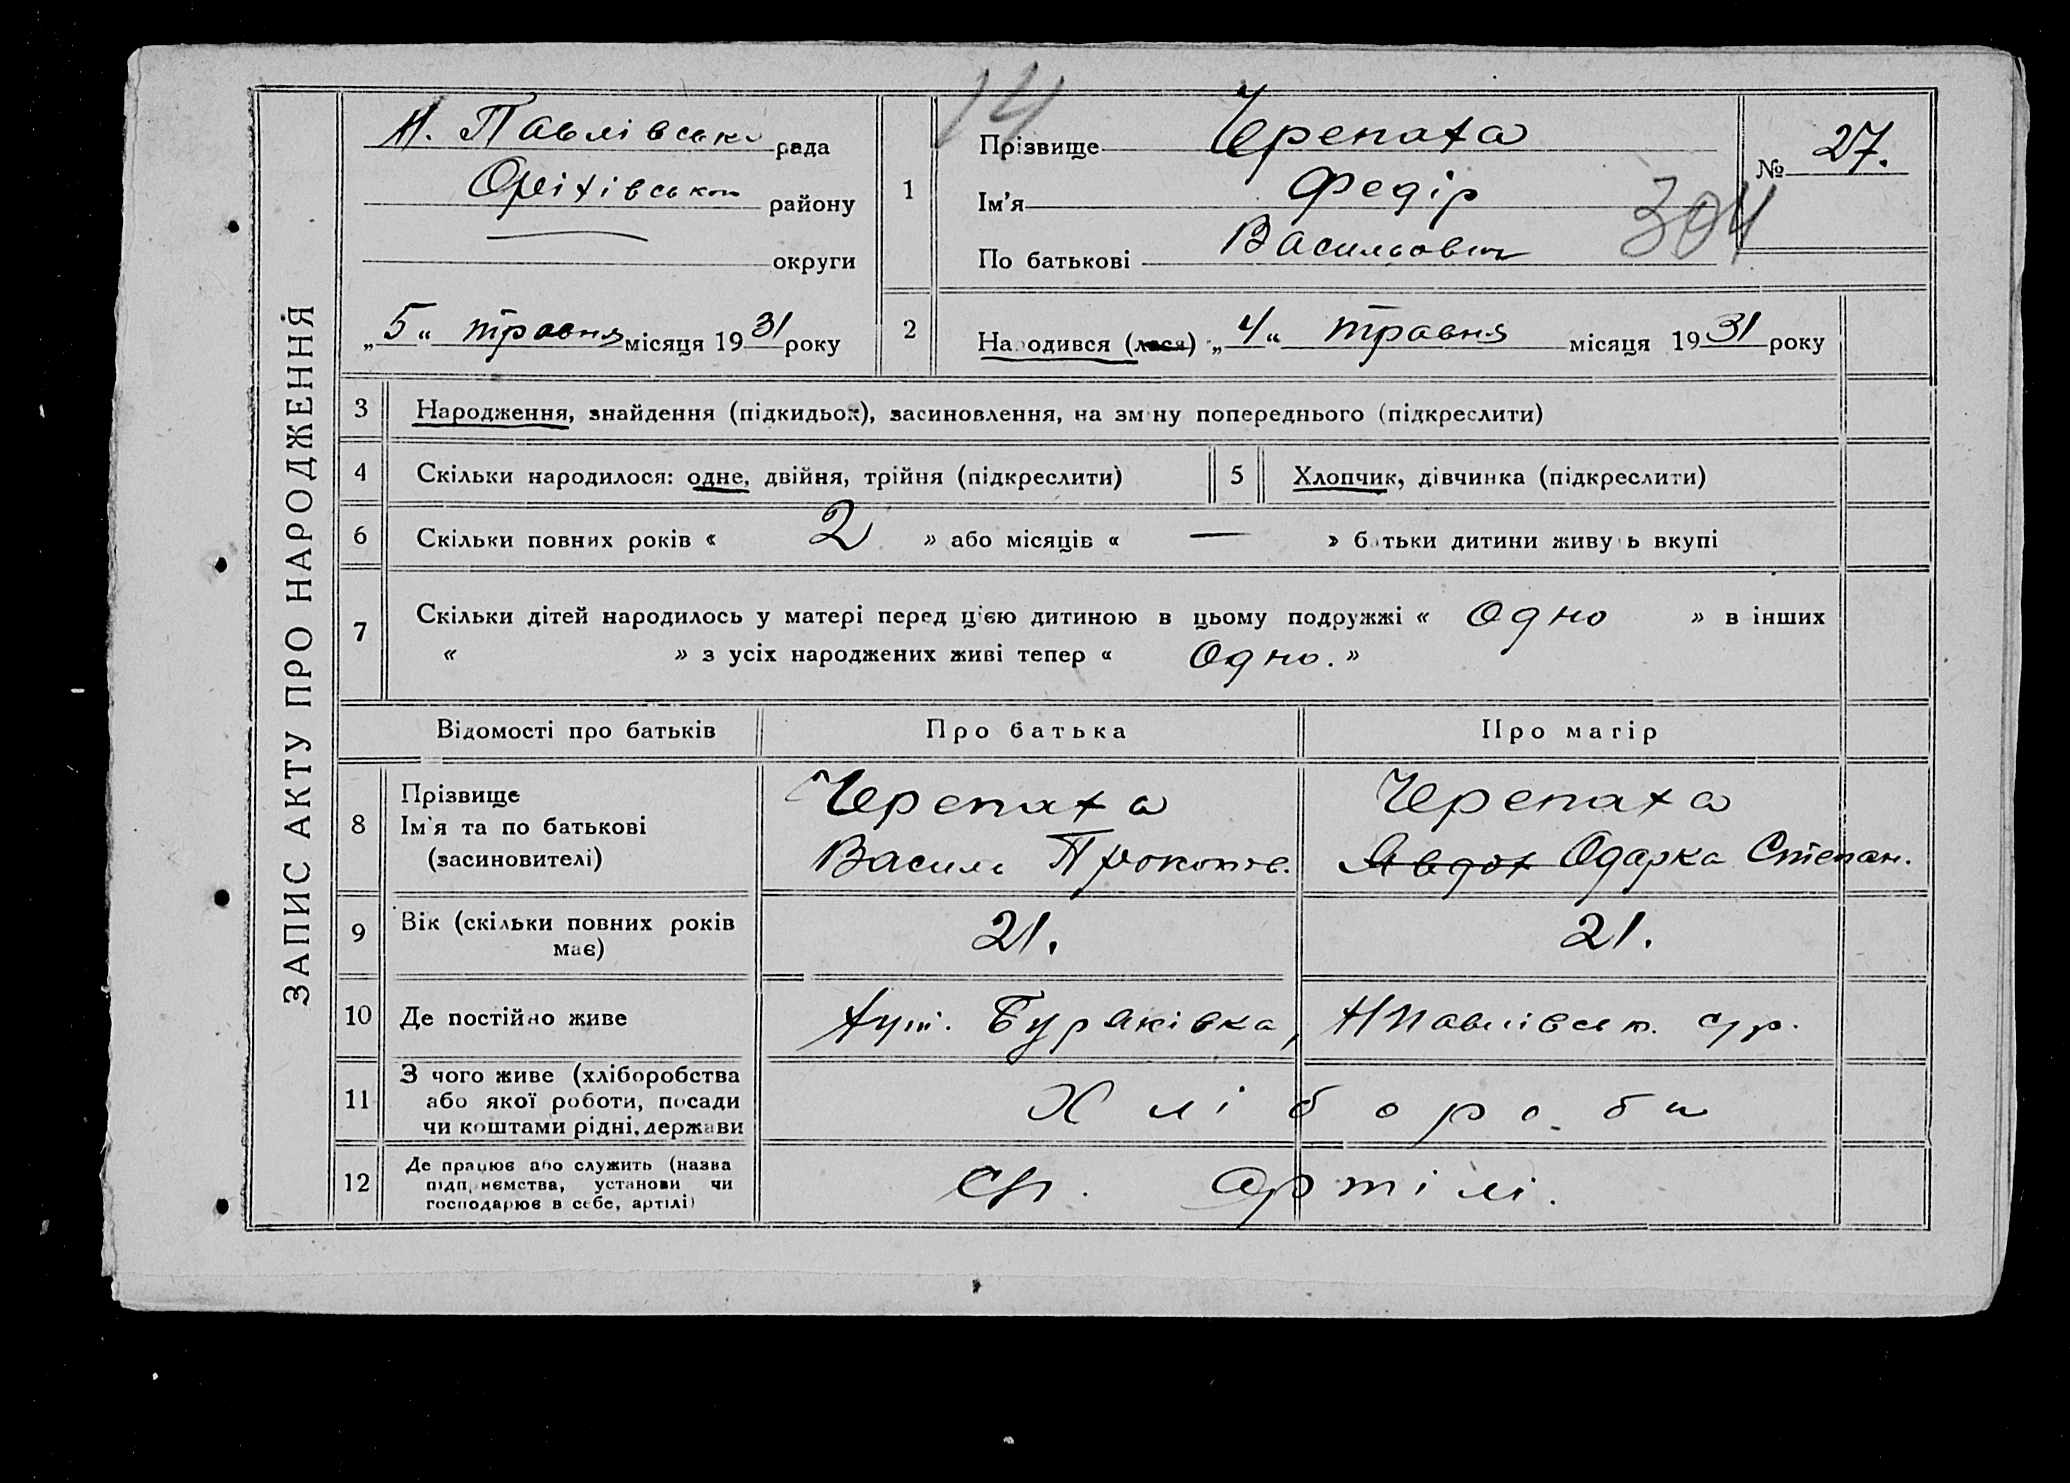 ЗАПИС АКТУ ПРО НАРОДЖЕННЯ
14
Н. Павлівська рада
Оріхівськ району
округи
„5“ травня місяця 1931 року
1
Прізвище Черепаха
Ім'я Федір
По батькові Васильович
№ 27.
304
2
Народився (лася) „4“ травня місяця 1931 року
3 Народження, знайдення (підкидьок), засиновлення, на зміну попереднього (підкреслити)
4 Скільки народилося: одне, двійня, трійня (підкреслити) 5 Хлопчик, дівчинка (підкреслити)
6 Скільки повних років « 2 » або місяців « — » батьки дитини живуть вкупі
7 Скільки дітей народилось у матері перед цією дитиною в цьому подружжі « Одно » в інших
« » з усіх народжених живі тепер « Одно. »
Відомості про батьків Про батька Про матір
8 Прізвище
Ім'я та по батькові
(засиновителі)
Черепаха
Василь Прокопов.
Черепаха
Явдох Одарка Степан.
9 Вік (скільки повних років має) 21. 21.
10 Де постійно живе хут. Буряківка, НПавлівськ. с/р.
11 З чого живе (хліборобства
або якої роботи, посади
чи коштами рідні, держави
Хлібороби
12 Де працює або служить (назва
підприємства, установи чи
господарює в себе, артілі)
артілі.